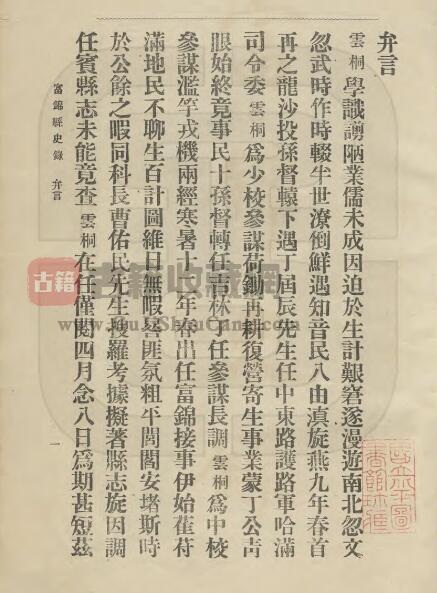 弁言
雲桐學識譾陋業儒未成因迫於生計艱窘逐漫遊南北忽文
忽武時作時輟半世潦倒鮮遇知音民八由滇旋燕九年春首
再之龍沙投孫督轅下遇丁屆辰先生任中東路護路軍哈滿
司令委雲桐為少校參謀荷鋤再耕復營寄生事業蒙丁公靑
眼始終竟事民十孫督轉任吉林丁任參謀長調雲桐為中校
參謀濫竽戎機兩經寒暑十一年春出任富錦接事伊始萑苻
滿地民不聊生百計圖維日無暇晷匪氛粗平閭閻安堵斯時
於公餘之暇同科長曹佑民先生搜羅考據擬著縣志旋因調
任賓縣志未能竟查雲桐在任僅閱四月念八日爲期甚短茲
富錦縣史錄 弁言
一
古籍
古籍收藏网